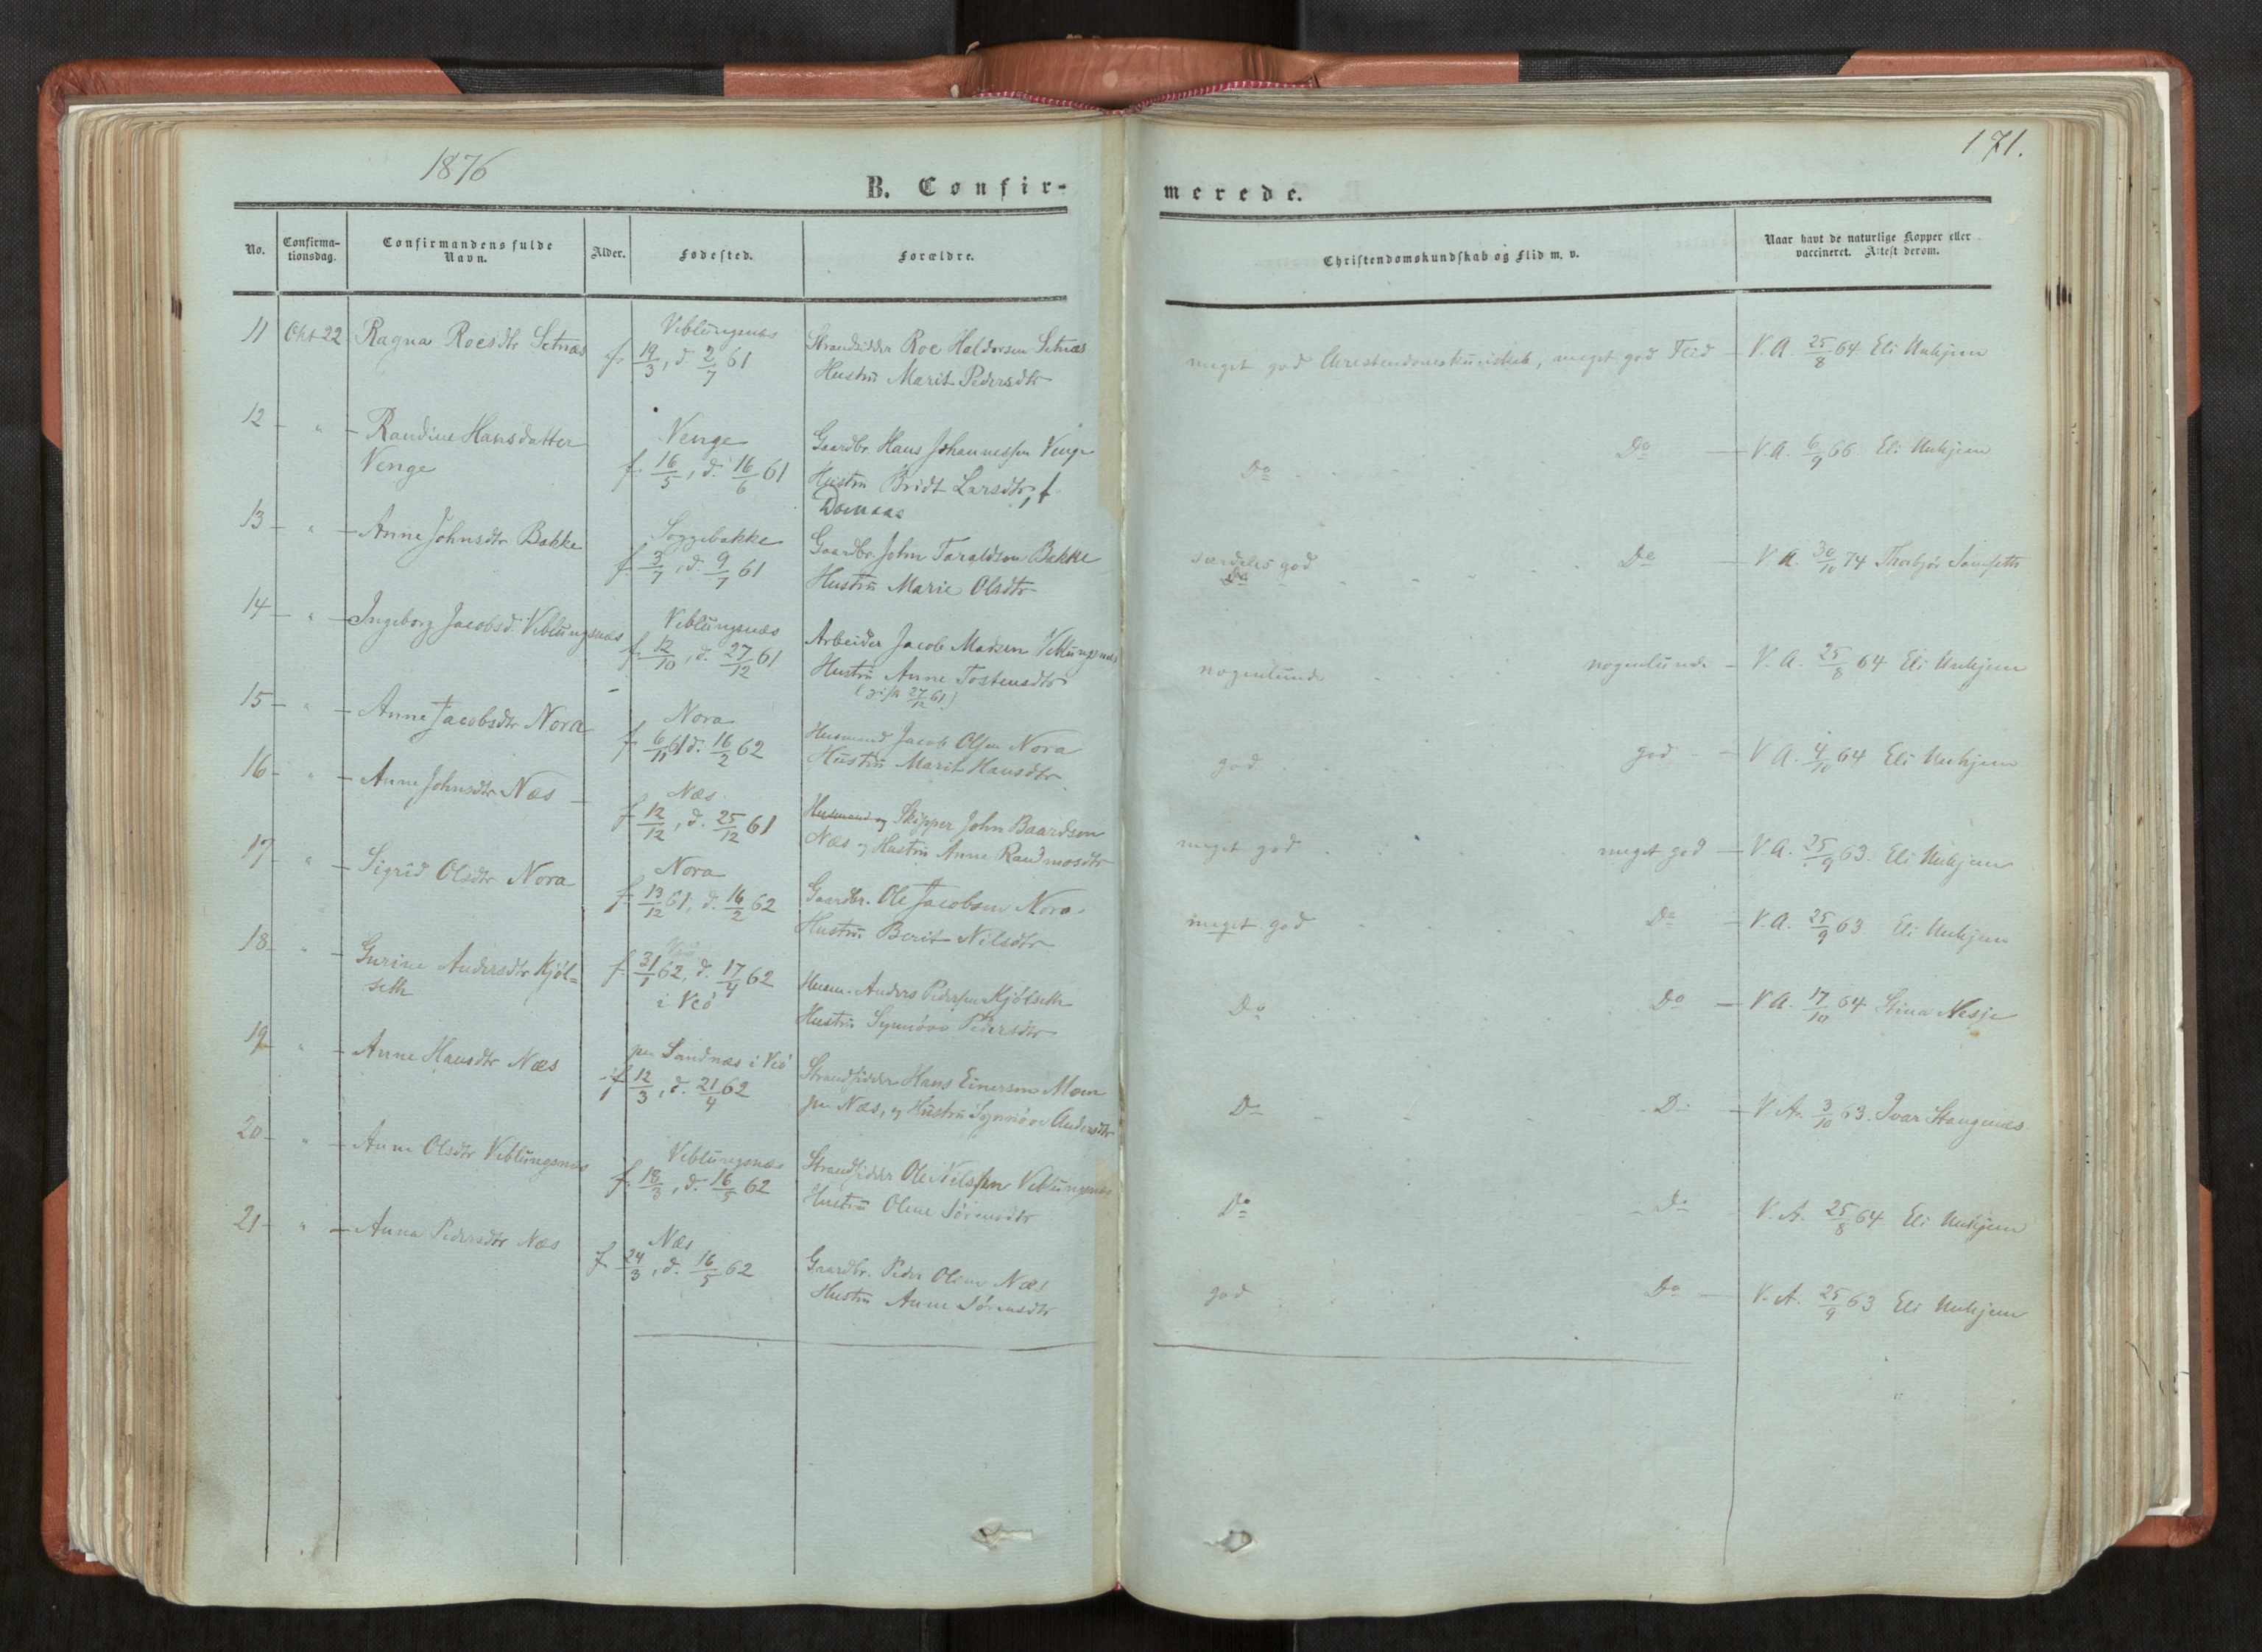 1876
171.
B. Confir-
merede.
No.
Confirma-
tionsdag.
Confirmandens fulde
Navn.
Alder.
Fødested.
Forældre.
Christendomskundskab og Flid m. v.
Naar havt de naturlige Kopper eller
vaccineret. Attest derom.
11 Okt 22 Ragna Roesdtr Setnæs
Veblungsnæs
f. 19/3, d. 2/7 61
Strandsidder Roe Haldorsen Setnæs
Hustru Marit Pedersdtr
meget god Christendomskundskab, meget god Flid - V. A. 25/8 64 Eli Unhjem
12 - " - Randine Hansdatter
Venge
Venge
f. 16/5, d. 16/6 61
Gaardbr. Hans Johannessen Venge
Hustru Bridt Larsdtr, f.
Do Do - V. A. 6/9 66 Eli Unhjem
13 - " - Anne Johnsdtr Bakke
Soggebakke
f. 3/7, d. 9/7 61
Gaardbr. John Taraldson Bakke
Hustru Marie Olsdtr
særdeles god Do - V. A. 30/10 74
14 - " - Ingeborg Jacobsd. Veblungsnæs
Veblungsnæs
f. 12/10, d. 27/12 61
Arbeider Jacob Madsen Veblungsnæs
Hustru Anne Tostensdtr
(gift 27/12 61)
nogenlunde nogenlunde - V. A. 25/8 64 Eli Unhjem
15 - " - Anne Jacobsdtr Nora
Nora
f. 6/11 61 d. 16/2 62
Husmand Jacob Olsen Nora
Hustru Marit Hansdtr
god god - V. A. 4/10 64 Eli Unhjem
16 - " - Anne Johnsdtr Næs -
Næs
f. 12/12, d. 25/12 61
Husmand og Skipper John Baardson
Næs og Hustru Anne Randmosdtr
meget god meget god - V. A. 25/9 63 Eli Unhjem
17 " - Sigrid Olsdtr Nora
Nora
f. 13/12 61, d. 16/2 62
Gaardbr. Ole Jacobsen Nora
Hustru Berit Nilsdtr
meget god Do - V. A. 25/9 63 Eli Unhjem
18 - " - Gurine Andersdtr Kjøl-
seth
f. 31/1 62, d. 17/4 62
i Veø
Husm. Anders Pedersen Kjølseth
Hustru Synnøve Pedersdtr
Do Do - V. A. 17/10 64 Stina Nesje
19 " - Anne Hansdtr Næs
paa Sandnæs i Veø
f. 12/3, d. 21/4 62
Strandsidder Hans Einersen Moen
paa Næs, og Hustru Synnøve Andersdtr
Do Do - V. A. 3/10 63. Ivar Stangenæs
20 - " - Anne Olsdtr Veblungsnæs
Veblungsnæs
f. 18/3, d. 16/5 62
Strandsidder Ole Nilssen Veblungsnæs
Hustru Oline Sørensdtr
Do Do V. A. 25/8 64 Eli Unhjem
21 - " - Anna Pedersdtr Næs
Næs
f. 24/3, d. 16/5 62
Gaardbr. Peder Olsen Næs
Hustru Anne Sørensdtr
god Do - V. A. 25/9 63 Eli Unhjem